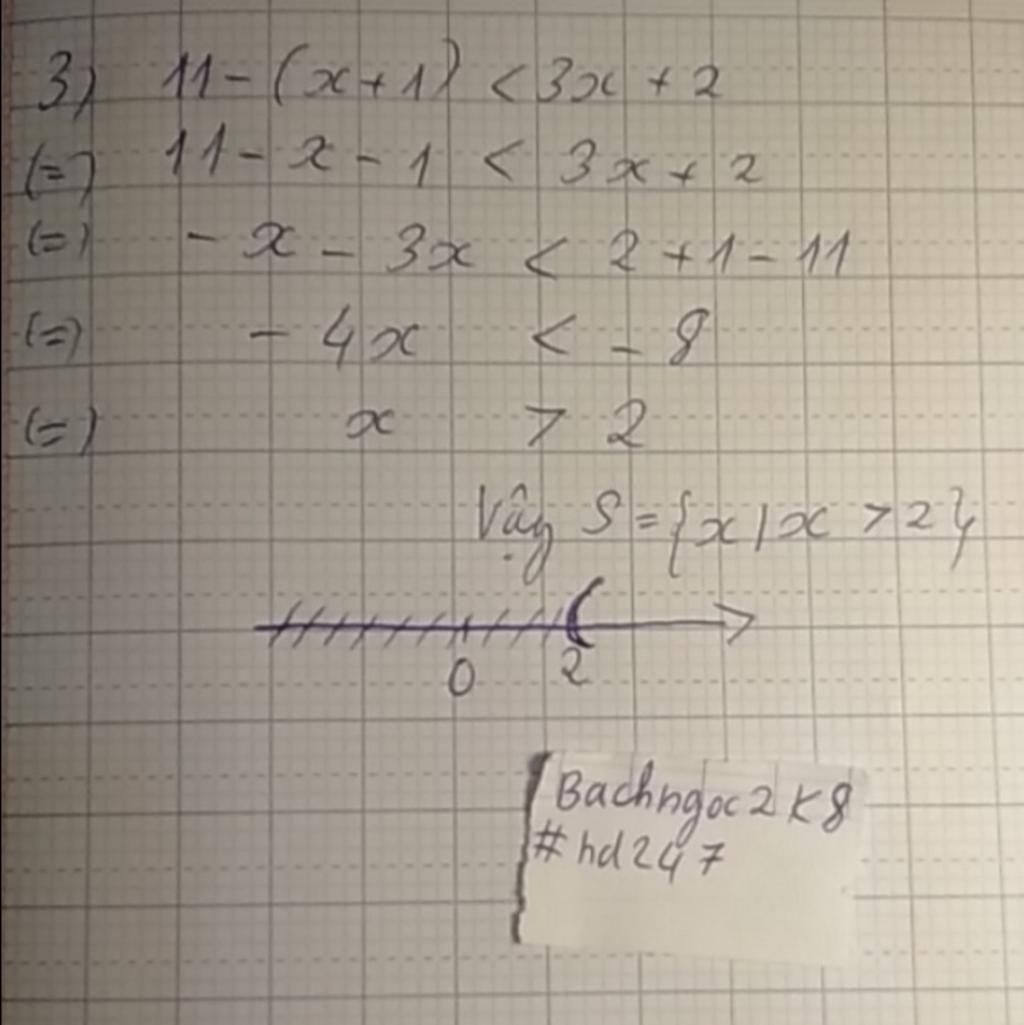 3) 11 - (x + 1) < 3x + 2
(=) 11 - x - 1 < 3x + 2
(=) - x - 3x < 2 + 1 - 11
(=) - 4x < - 8
(=) x > 2
Vậy S = {x | x > 2}
0 2
Bachngoc2K8
#hd247